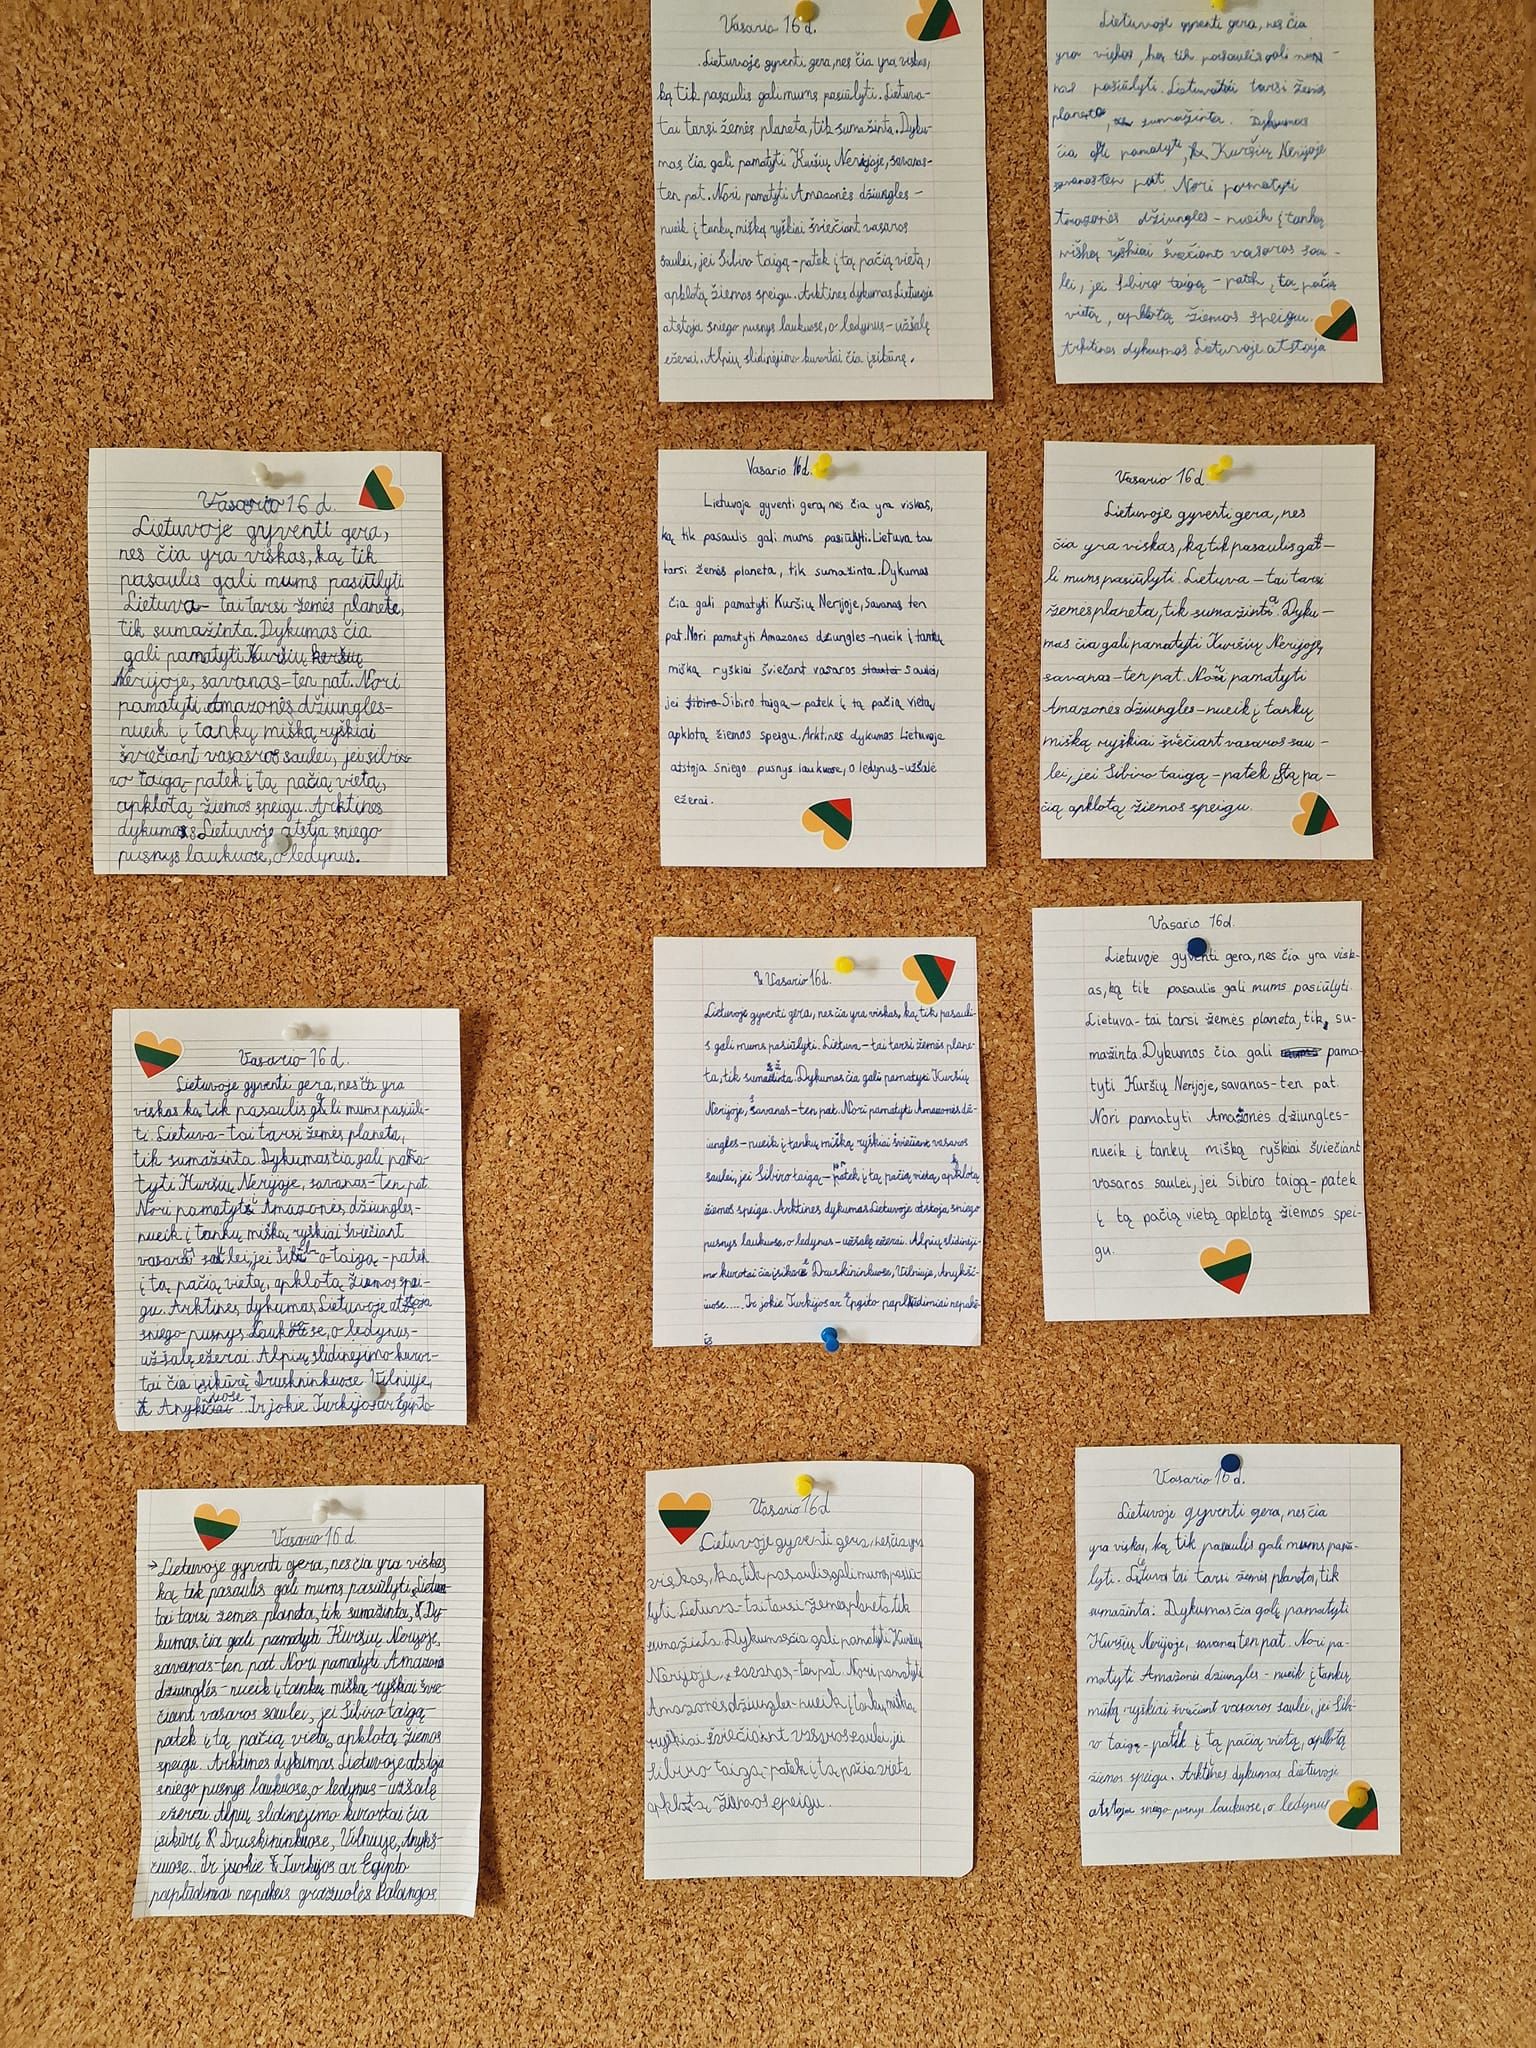 Vasario 16 d.
Lietuvoje gyventi gera, nes čia yra viskas,
ką tik pasaulis gali mums pasiūlyti. Lietuva-
tai tarsi žemės planeta, tik sumažinta. Dyku-
mas čia gali pamatyti Kuršių Nerijoje, savanas-
ten pat. Nori pamatyti Amazonės džiungles-
nueik į tankų mišką ryškiai šviečiant vasaros
saulei, jei Sibiro taigą-patek į tą pačią vietą,
apklotą žiemos speigu. Arktines dykumas Lietuvoje
atstoja sniego pusnys laukuose, o ledynus-užšalę
ežerai. Alpių slidinėjimo kurortai čia įsikūrę.
Lietuvoje gyventi gera, nes čia
yra viskas, ką tik pasaulis gali
pasiūlyti. tarsi žemės
sumažinta. Dykumas
čia gali pamatyti, Kuršių Nerijoje
savanas ten pat. Nori pamatyti
Amazonės džiungles - nueik į tankų
mišką ryškiai švečiant vasaros sau-
lei, jei Sibiro taigą - patek į tą pačią
vietą, apklotą žiemos speigu.
Arktines dykumas Lietuvoje atstoja
Vasario 16 d.
Lietuvoje gyventi gera,
nes čia yra viskas, ką tik
pasaulis gali mums pasiūlyti.
Lietuva- tai tarsi žemės planeta,
tik sumažinta. Dykumas čia
gali pamatyti Kuršių
Nerijoje, savanas-ten pat. Nori
pamatyti Amazonės džiungles-
nueik į tankų mišką ryškiai
šviečiant vasaros saulei, jei sibi-
ro taigą-patek į tą pačią vietą,
apklotą žiemos speigu. Arktines
dykumas Lietuvoje atstja sniego
pusnys laukuose, o ledynus.
Vasario 16d.
Lietuvoje gyventi gera, nes čia yra viskas,
ką tik pasaulis gali mums pasiūlyti. Lietuva tai
tarsi žemės planeta, tik sumažinta. Dykumas
čia gali pamatyti Kuršių Nerijoje, Savanas ten
pat. Nori pamatyti Amazones džiungles-nueik į tankų
mišką ryškiai šviečant vasaros saulei,
jei Sibiro Sibiro taigą-patek į tą pačią vietą,
apklotą žiemos speigu. Arktines dykumas Lietuvoje
atstoja sniego pusnys laukuose, o ledynus-užšalė
ežerai.
Vasario 16d.
Lietuvoje gyventi gera, nes
čia yra viskas, ką tik pasaulis ga-
li mums pasiūlyti. Lietuva - tai tarsi
žemes planeta, tik sumažinta. Dyku-
mas čia gali pamatyti Kuršių Nerijoje,
savanas-ten pat. Nori pamatyti
Amazonės džiungles-nueik į tankų
mišką ryškiai švėčiant vasaros sau-
lei, jei Sibiro taigą-patek į tą pa-
čią apklotą žiemos speigu.
Vasario 16 d.
Lietuvoje gyventi gera, nes čia yra
viskas ką tik pasaulis gali mums pasiūli-
ti. Lietuva-tai tarsi žemės planeta,
tik sumažinta. Dykumas čia gali pama-
tyti Kuršių Nerijoje, savanas-ten pat.
Nori pamatyti Amazonės džiungles-
nueik į tankų mišką ryškiai šviečiant
vasaros saulei, jei taigą-patek
į tą pačią vietą, apklotą žiemos spei-
gu. Arktines dykumas Lietuvoje atstoja
sniego pusnys laukuose, o ledynus-
užšalę ežerai. Alpių slidinėjimo kuror-
tai čia įsikūrę Druskininkuose Vilniuje,
Ir jokie Turkijos ar Egipto
Vasario 16d.
Lietuvoje gyventi gera, nes čia yra viskas, ką tik pasauli-
s gali mums pasiūlyti. Lietuva-tai tarsi žemės plane-
ta, tik sumažinta. Dykumas čia gali pamatyti Kuršių
Nerijoje, savanas-ten pat. Nori pamatyti Amazonės dž-
iungles-nueik į tankų mišką ryškiai šviečiant vasaros
saulei, jei Sibiro taigą-patek į tą pačią vietą, apklotą
žiemos speigu. Arktines dykumas Lietuvoje atstoja sniego
pusnys laukuose, o ledynus-užšalę ežerai. Alpių slidinėji-
mo kurortai čia įsikūrė Druskininkuose, Vilniuje, Anykšč-
iuose..... Ir jokie Turkijos ar Egipto paplūdimiai nepakė-
Vasario 16d.
Lietuvoje gyventi gera, nes čia yra visk-
as, ką tik pasaulis gali mums pasiūlyti.
Lietuva-tai tarsi žemės planeta, tik, su-
mažinta. Dykumos čia gali pama-
tyti Kuršių Nerijoje, savanas-ten pat.
Nori pamatyti Amazonės džiungles-
nueik į tankų mišką ryškiai šviečiant
vasaros saulei, jei Sibiro taigą-patek
į tą pačią vietą apklotą žiemos spei-
gu.
Vasario 16 d.
Lietuvoje gyventi gera, nes čia yra viskas,
ką tik pasaulis gali mums pasiūlyti. Lietuva
tai tarsi žemės planeta, tik sumažinta, Dy-
kumas čia gali pamatyti Kuršių Nerijoje,
savanas-ten pat. Nori pamatyti
džiunglės-nueik į tankų mišką ryškiai švie-
čiant vasaros saulei, jei Sibiro taigą-
patek į tą pačią vietą, apklotą žiemos
speigu. Arktines dykumas Lietuvoje atstoja
sniego pusnys laukuose, o ledynus-užšalę
ežerai. Alpių slidinėjimo kurortai čia
įsikūrę Druskininkuose, Vilniuje, Anykš-
čiuose... Ir Turkijos ar Egipto
paplūdimiai nepakeis gražuolės Palangos
Vasario 16 d
Lietuvoje gyventi gera, nes čia yra
viskas, ką tik pasaulis gali mums pasiū-
lyti. Lietuva-tai tarsi žemės planeta tik
sumažinta. Dykumas čia gali pamatyti Kuršių
Nerijoje, savanas-ten pat. Nori pamatyti
Amazonės džiungles-nueik į tankų mišką,
ryškiai šviečiaint vasaros saulei, ji
Sibiro taigą-patek į tą pačia vieta
apklotą žiemos speigu.
Vasario 16 d.
Lietuvoje gyventi gera, nes čia
yra viskas, ką tik pasaulis gali mums pasiū-
lyti. Lietuva tai tarsi žemės planeta, tik
sumažinta: Dykumas čia galį pamatyti
Kuršių Nerijoje, savanas ten pat. Nori pa-
matyti Amazonės džiungles-nueik į tankų
mišką ryškiai švečiant vasaros saulei, jei Sib-
ro taigą-patek į tą pačią vietą, apklotą
žiemos speigu. Arktines dykumas Lietuvoje
atstoja sniego pusnys laukuose, o ledynus